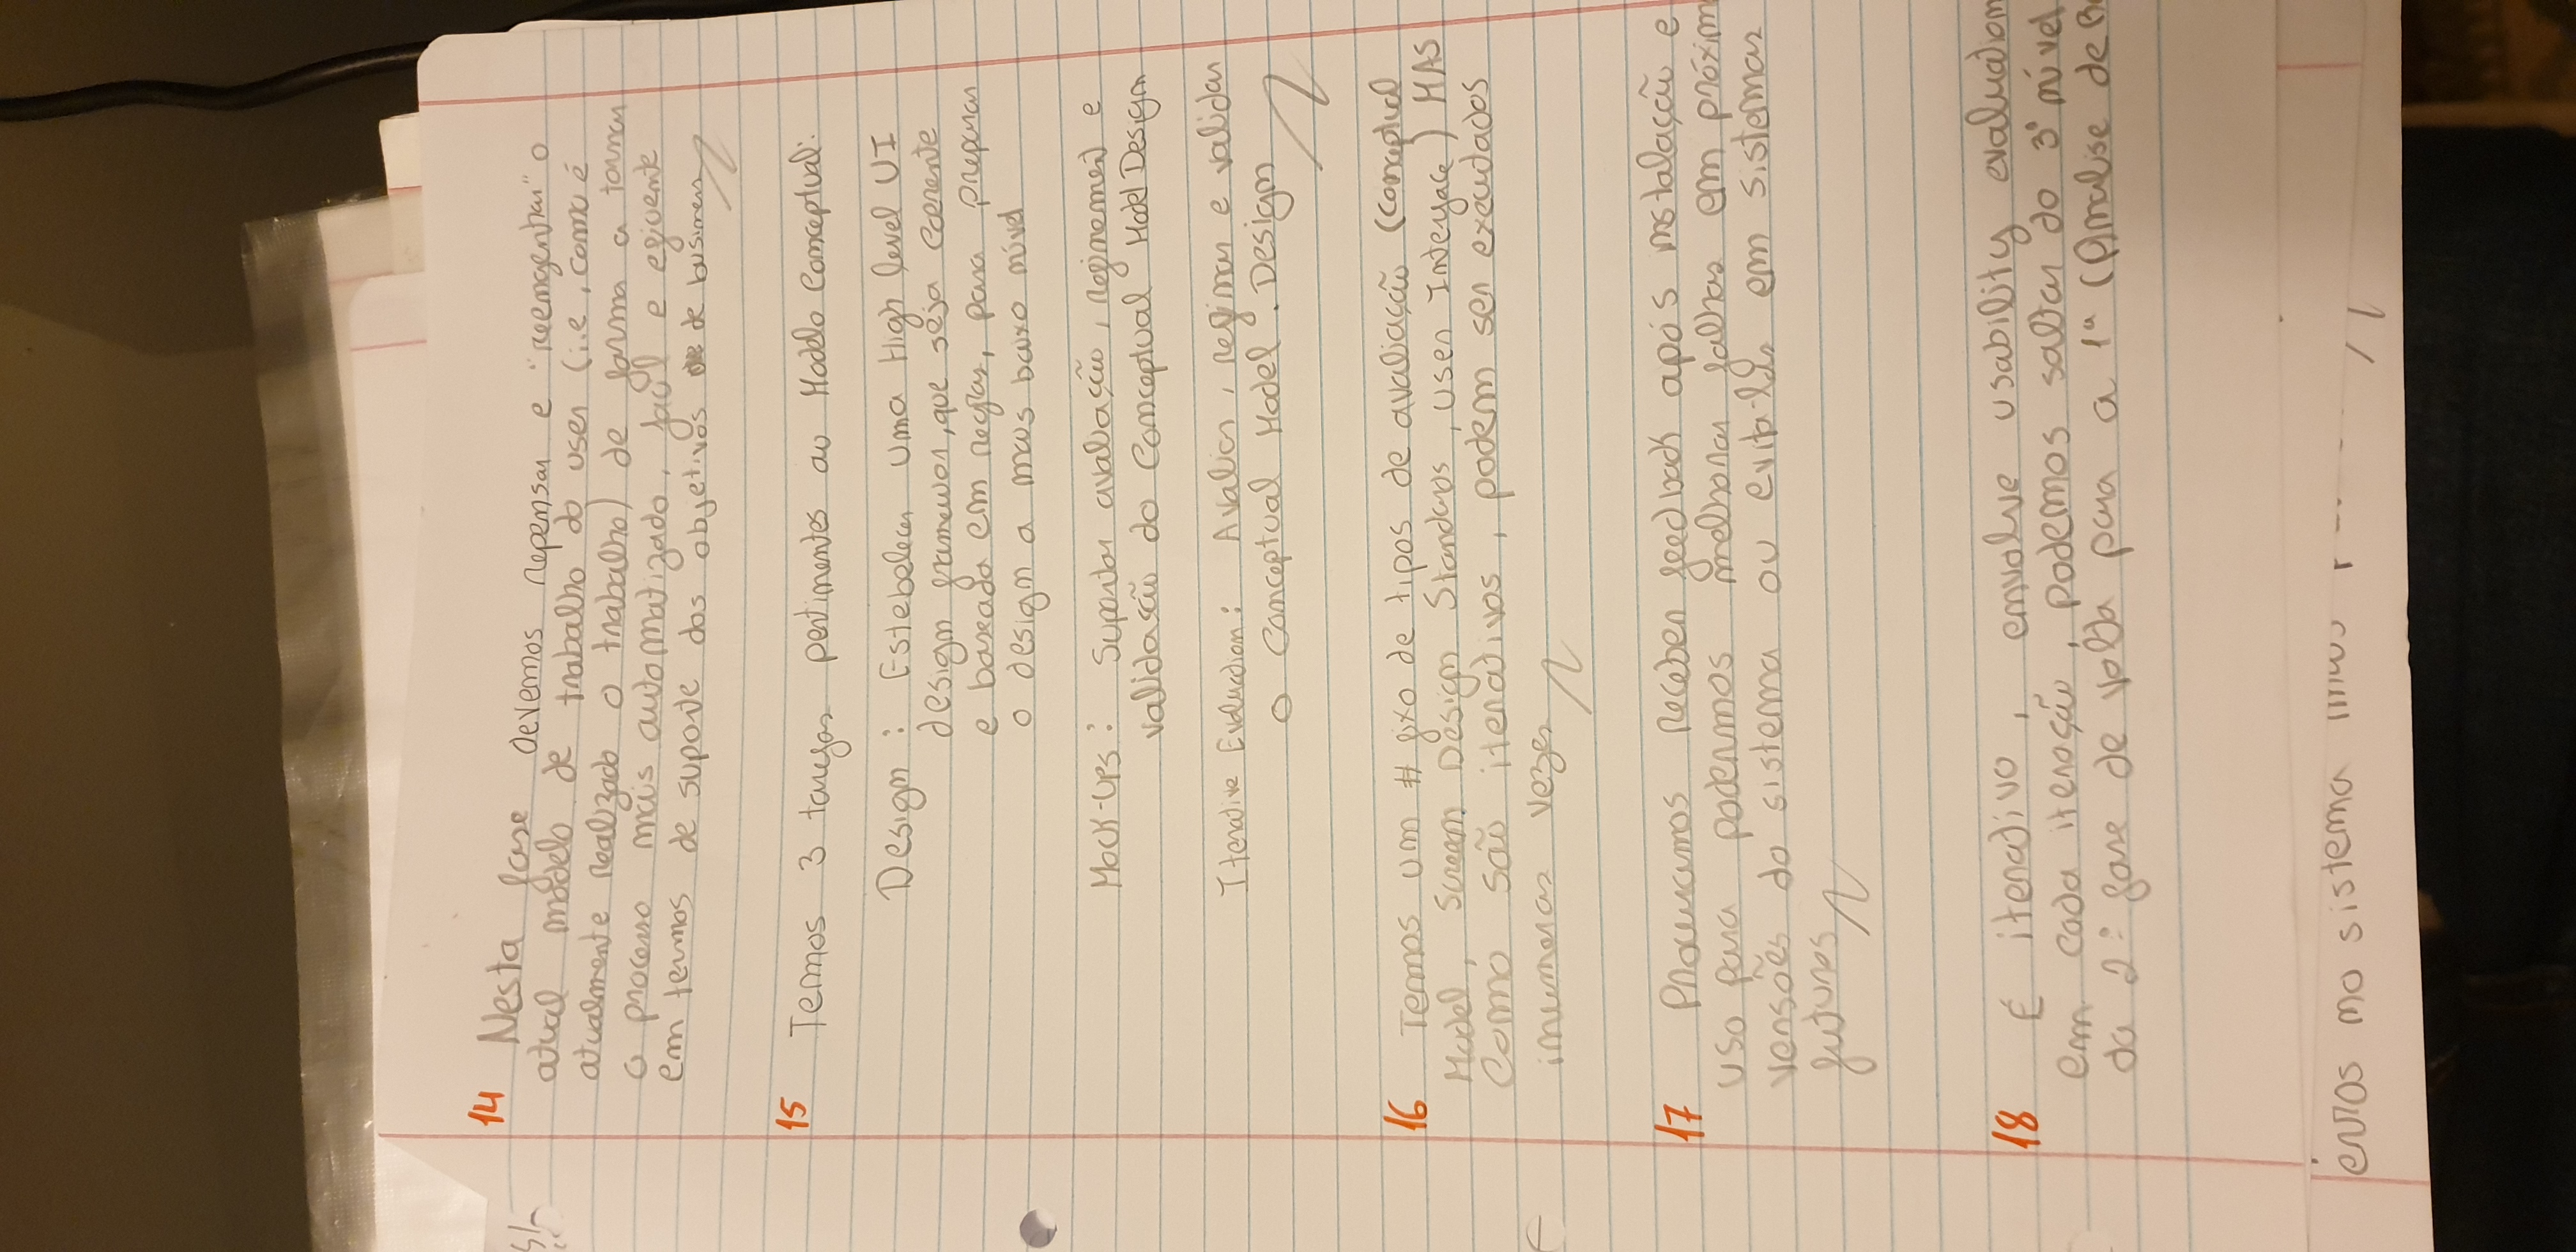 14 Nesta fase devemos repensar e "reemgenhar" o
atual modelo de trabalho do user (i.e, como é
atualmente realizado o trabalho) de forma a tornar
o processo mais automatizado, facil e eficiente
em termos de suporte dos objetivos de business
15 Temos 3 tarefas pertinentes ao Modelo Conceptual:
Design : Estebelecer uma High level UI
design framewor, que seja coerente
e baseada em regras, para preparar
o design a mais baixo nível
Mock-Ups : Suportar avaliação, refinement e
validação do Conceptual Model Design
Iterative Evaluation : Avaliar, refinar e validar
o Conceptual Model Design
16 Temos um # fixo de tipos de avaliação (conceptual
Model, Screen Design Standards, User Interface) MAS
Como são iterativos, podem ser executados
inumeras vezes
17 Procuramos receber feedback após instalação e
uso para podermos melhorar falhas em próxim
versões do sistema ou evita-las em sistemas
futuros
18 É iterativo, envolve usability evaluation
em cada iteração, podemos saltar do 3º nível
da 2ª fase de volta para a 1ª (Analise de
erros no sistema